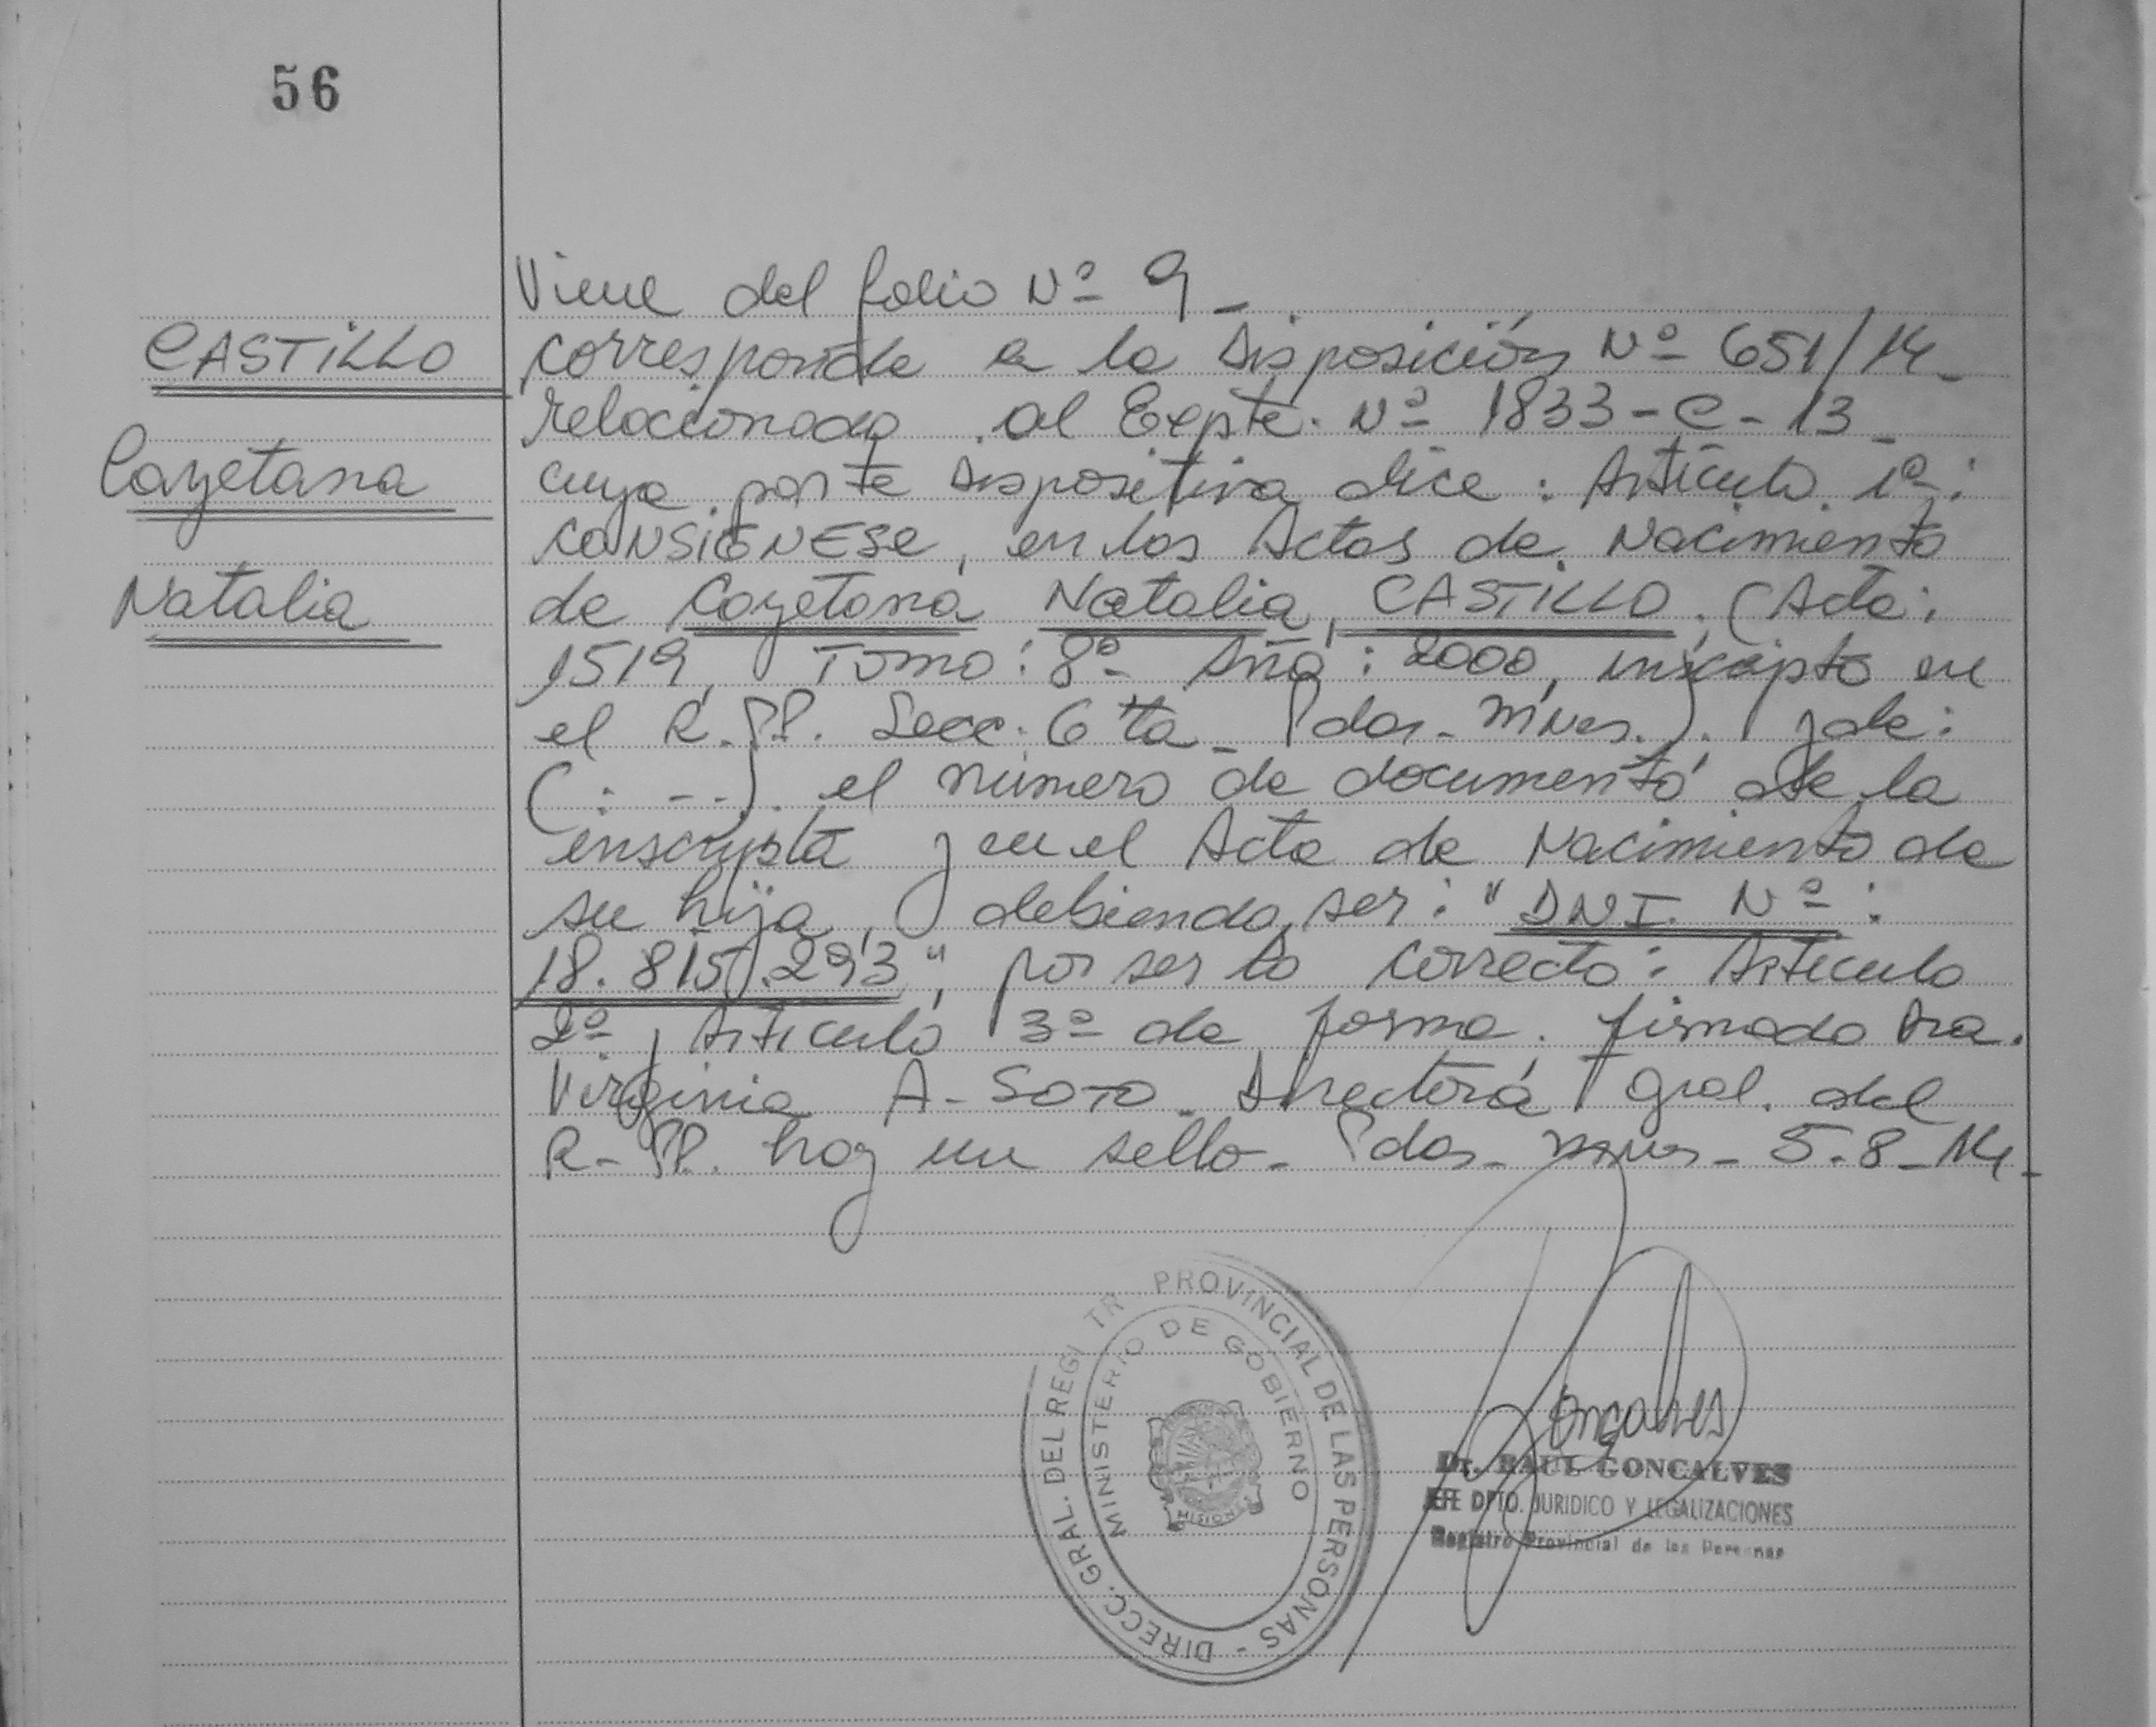 56
Viene del folio Nº 9_
CASTILLO
Cayetana
Natalia
corresponde a la Disposición Nº 651/14_
relacionado al Expte. Nº 1833-C-13_
cuya parte Dispositiva dice: Artículo 1º:
CONSIGNESE, en los Actas de Nacimiento
de Cayetana Natalia, CASTILLO; (Acta:
1519, Tomo: 8º- Año: 2000, inscripto en
el R.PP. Secc. 6ta_ Pdas-Mnes.). y de:
(: --). el número de documento de la
inscripta y en el Acta de Nacimiento de
su hija, debiendo ser: "DNI. Nº:
18.815.293", por ser lo correcto: Artículo
2º, Artículo 3º de forma. firmado Dra.
Virginia A- SOTO_ Directora Gral. del
R-PP. hay un sello- Pdas- Mnes- 5-8-14-
DIRECC. GRAL. DEL REGI TR PROVINCIAL DE LAS PERSONAS -
MINISTERIO DE GOBIERNO
MISION
Gonçalves
Dr. RAUL GONCALVES
JEFE DPTO. JURIDICO Y LEGALIZACIONES
Registro Provincial de las Personas